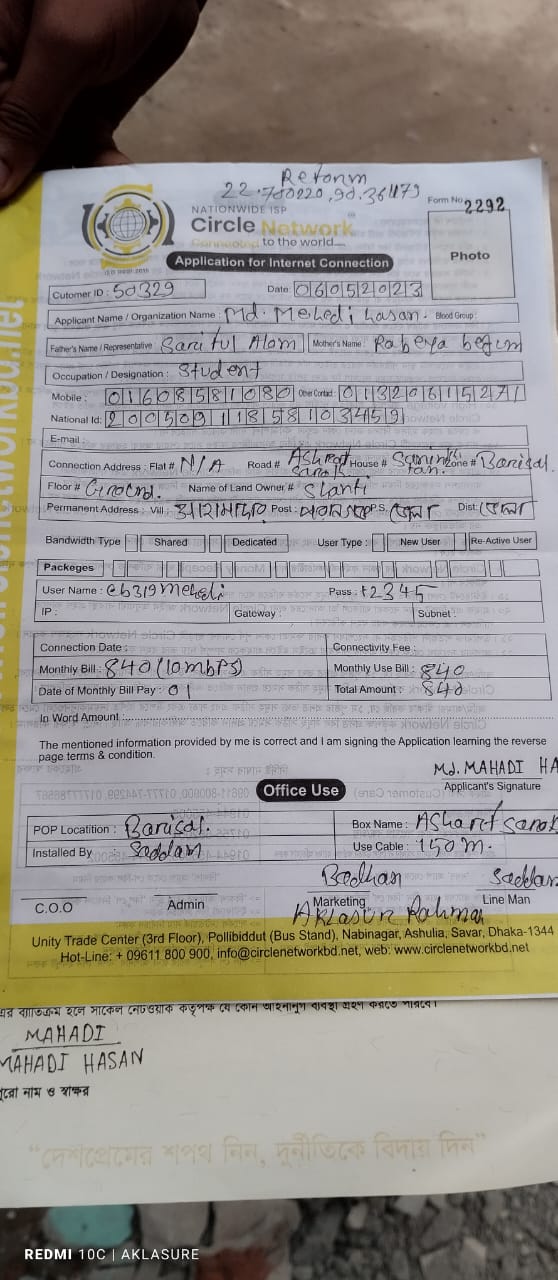 Retonm
22.780220,90.361179
NATIONWIDE ISP
Circle Network
Connected to the world
Form No 2292
Photo
Application for Internet Connection
Cutomer ID : 50329 Date: 06052023
Applicant Name / Organization Name : Md. Mehedi hasan. Blood Group:
Father's Name / Representative Sariful Alom Mother's Name: Rabeya begum
Occupation / Designation : Student
Mobile : 01608581080 Other Contact :
National Id: 20050911858103459
E-mail :
Connection Address : Flat # N/A Road # Ashrof Sarok House # Zone # Barisal.
Floor # Ground. Name of Land Owner # Shanti
Permanent Address : Vill : Post : P.S. জেলা Dist: জেলা
Bandwidth Type Shared Dedicated User Type : New User Re-Active User
Packeges
User Name : Pass : 12345
IP : Gateway : Subnet :
Connection Date : Connectivity Fee :
Monthly Bill : 840 (10mbPS) Monthly Use Bill : 840
Date of Monthly Bill Pay : 01 Total Amount : 840
In Word Amount
The mentioned information provided by me is correct and I am signing the Application learning the reverse
page terms & condition.
Md. MAHADI HA
Applicant's Signature
Office Use
POP Locatition : Barisal. Box Name : Asharif Sarok
Installed By : Saddam Use Cable : 150m.
Bodhan Saddam
C.O.O Admin Marketing Line Man
Aklasur Rahman
Unity Trade Center (3rd Floor), Pollibiddut (Bus Stand), Nabinagar, Ashulia, Savar, Dhaka-1344
Hot-Line: + 09611 800 900, info@circlenetworkbd.net, web: www.circlenetworkbd.net
MAHADI
MAHADI HASAN
পুরো নাম ও স্বাক্ষর
“দেশপ্রেমের শপথ নিন, দুর্নীতিকে বিদায় দিন”
REDMI 10C | AKLASURE